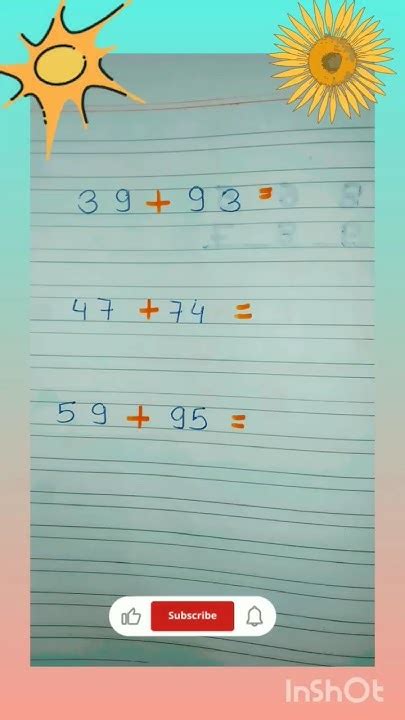 InShOt
39 + 93 =
47 + 74 =
59 + 95 =
Subscribe
InShOt